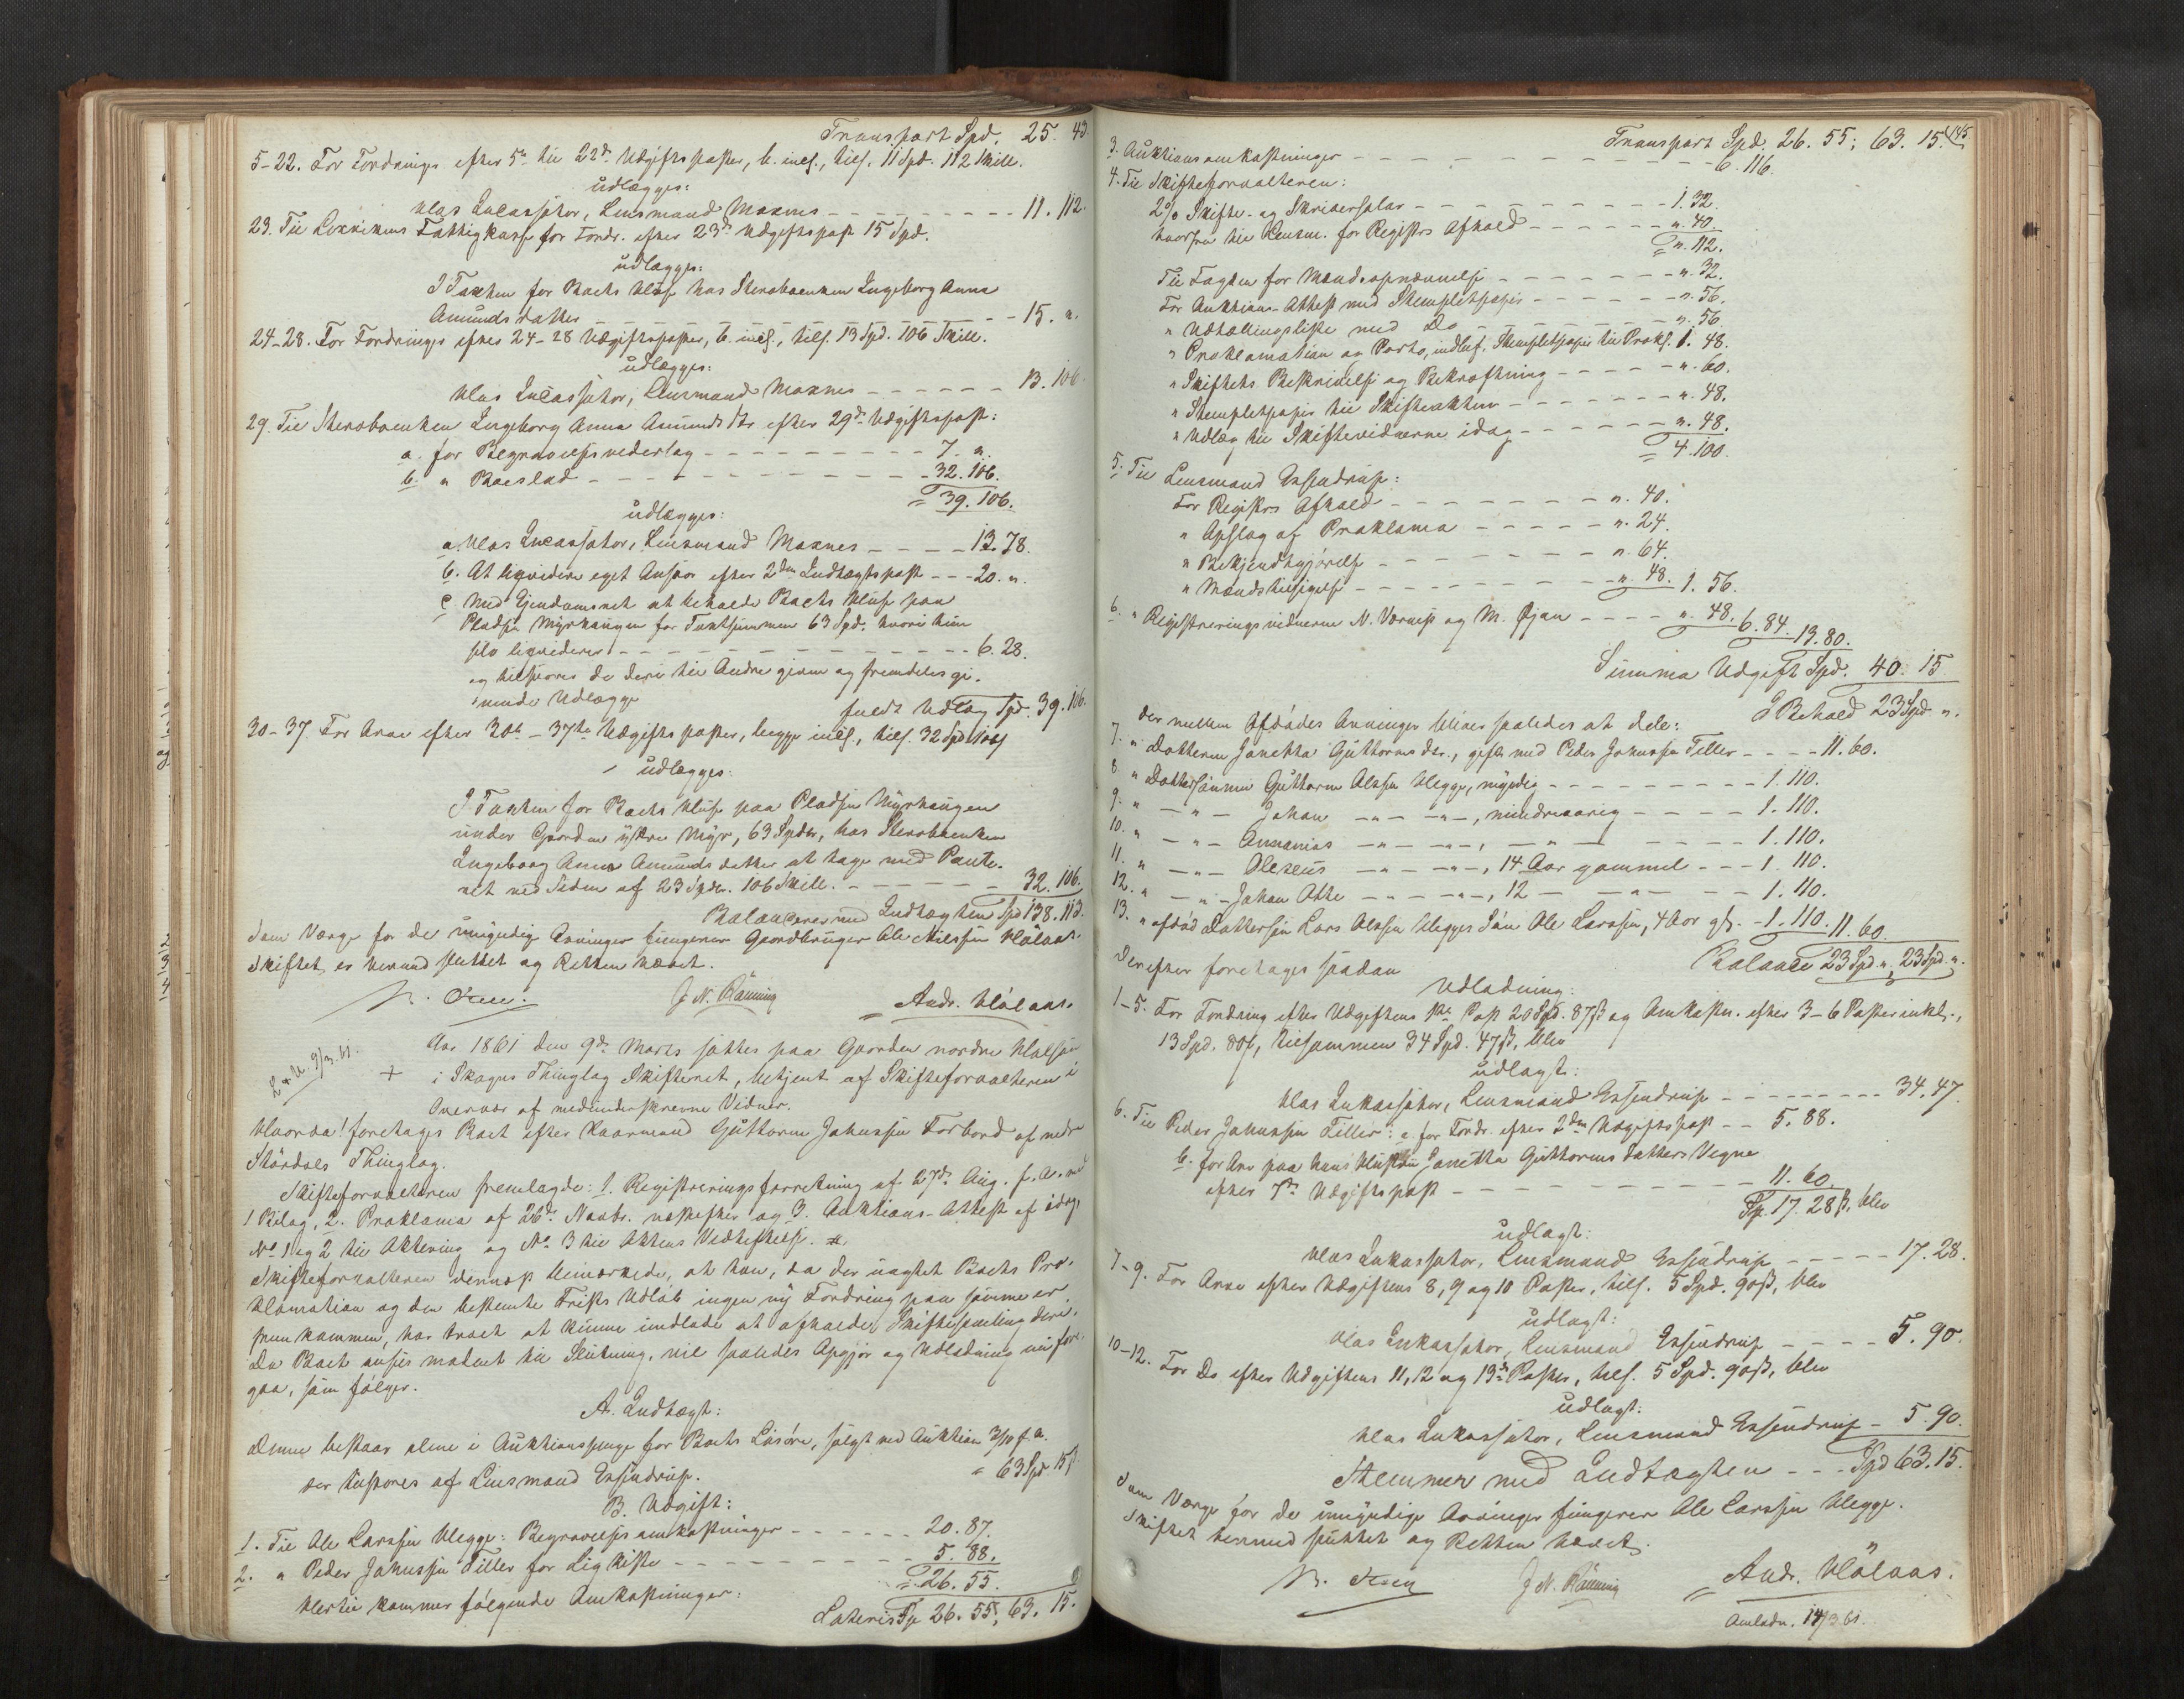 Transport Spd. 25. 43.
5-22. For Fordringer efter 5te til 22de Udgiftsposter, b. incl., tils. 11 Spd. 112 Skill.
udlægges:
hos Incassator, Lensmand Moxnes - - - - 11. 112.
23. Til Lexvikens Fattigkasse for Fordr. efter 23de Udgiftspost 15 Spd.
udlægges:
I Taxten for Boets Huse hos Sterboenken Ingeborg Anna
Amundsdatter - - - - 15. „.
24-28. For Fordringer efter 24-28 Udgiftsposter, b. incl., tils. 13 Spd. 106 Skill.
udlægges:
hos Incassator, Lensmand Moxnes - - - - 13. 106.
29. Til Sterboenken Ingeborg Anna Amundsdtr efter 29de Udgiftspost:
a. for Begravelsesvederlag - - - - 7. „.
b. „ Boeslod - - - - 32. 106.
= 39. 106.
udlægges:
a. hos Incassator, Lensmand Moxnes - - - - 13. 78.
b. At liqvidere eget Ansvar efter 2den Indtægtspost - - - 20. „.
c. Med Eiendomsret at beholde Boets Huse paa
Pladsen Myrhaugen for Taxtsummen 63 Spd. hvori hun
selv liqviderer - - - - 6. 28.
og tilsvares de deri til Andre givne og fremdeles gi-
vende Udlægge
fuldt Udlæg Spd. 39. 106.
30-37. For Arv efter 30te - 37te Udgiftsposter, begge incl., tils. 32 Spd 106 s
udlægges:
I Taxten for Boets Huse paa Pladsen Myrhaugen
under Gaarden ystre Myr, 63 Spdlr, hos Sterboenken
Ingeborg Anna Amundsdatter at tage med Pante-
ret ved Siden af 23 Spdlr. 106 Skill. - - - - 32. 106.
Balancerer med Indtægten Spd 138. 113.
Som Værge for de umyndige Arvinger fungerer Gaardbruger Ole Nielssen Hølaas.
Skiftet er hermed sluttet og Retten hævet.
J. N. Rønning Andr. Hölaas.
9/3. 61.
+ Aar 1861 den 9de Marts sattes paa Gaarden nordre
i Skogns Thinglag Skifteret, betjent af Skifteforvalteren i
Overvær af medunderskrevne Vidner.
Hvorda! foretages Boet efter Kaarmand Guttorm Johnssen Forbord af nedre
Størdals Thinglag.
Skifteforvalteren fremlagde: 1. Registreringsforretning af 27de Aug. f. A. med
1 Bilag, 2. Proklama af 26de Novbr. næstefter og 3. Auktions-Attest af idag,
No 1 og 2 til Aktering og No 3 til Aktens Vedheftelse.
Skifteforvalteren dernæst bemærkede, at han, da der uagtet Boets Pro-
klamation og den bestemte Frists Udløb ingen ny Fordring paa samme er
fremkommen, har troet at kunne undlade at afholde Skiftesamling deri.
Da Boet ansees modent til Slutning, vil saaledes Opgjør og Udlodning nu fore-
gaa, som følger.
A. Indtægt:
Denne bestaar alene i Auktionspenge for Boets Løsøre, solgt ved Auktion 3/10 f. A.
der tilsvares af Lensmand Essendrup. = 63 Spd 15 ß.
B. Udgift:
1. Til Ole Larssen Hegge: Begravelsesomkostninger - - - - 20. 87.
2. „ Peder Johnssen Tiller for Ligkiste - - - - 5. 88.
= 26. 55.
Hertil kommer følgende Omkostninger:
Lateris Sp 26. 55; 63. 15.
Transport Spd. 26. 55; 63. 15. 145
3. Auktionsomkostninger - - - - 6. 116.
4. Til Skifteforvalteren:
2% Skifte- og Skriversalær - - - - 1. 32.
hvorfra til Lensm. for Registrs Afhold - - - - „. 40.
= „. 112.
Til Fogden for Mændsopnævnelse - - - - „. 32.
For Auktions-Attest med Stempletpapir - - - - „. 56.
„ Udtællingsliste med Do - - - - „. 56.
„ Proklamation og Porto, indbef. Stempletpapir til Prokl. 1. 48.
„ Skiftets Beskrivelse og Bekræftning - - - - „. 60.
„ Stempletpapir til Skifteakten - - - - „. 48.
„ Udlæg til Skiftevidnerne idag - - - - „. 48.
= 4. 100.
5. Til Lensmand Essendrup:
For Registrs Afhold - - - - „. 40.
„ Opslag af Proklama - - - - „. 24.
„ Bekjendtgjørelse - - - - „. 64.
„ Mændstilsigelse - - - - „. 48. 1. 56.
6. „ Registreringsvidnerne N. Værnes og M. Øian - - - - „. 48. 6. 84. 13. 80.
Summa Udgift Spd. 40. 15
I Behold 23 Spd „.
der mellem Afdødes Arvinger bliver saaledes at dele:
7. „ Datteren Janetta Guttormsdtr., gift med Peder Johnssen Tiller - - - - 11. 60.
8 „ Dattersønnen Guttorm Olssen Hegge, myndig - - - - 1. 110.
9. „ — „ — Johan — „ — „ —, mindreaarig - - - - 1. 110.
10. „ — „ — Annanias — „ — „ —, — „ — - - - - 1. 110.
11. „ — „ — Oleæus — „ — „ —, 14 Aar gammel - - - 1. 110.
12. „ — „ — Johan Otte — „ — „ —, 12 — „ — - - - - 1. 110.
13. „ afdød Dattersøn Lars Olssen Hegges Søn Ole Larssen, 4 Aar gl. - 1. 110. 11. 60.
Balance 23 Spd „, 23 Spd „.
Derefter foretages saadan
Udlodning:
1-5. For Fordring efter Udgiftens 1ste Post 20 Spd. 87 ß og Omkostn. efter 3-6 Poster inkl.,
13 Spd. 80 ß, tilsammen 34 Spd. 47 ß, blev
udlagt:
hos Inkassator, Lensmand Essendrup - - - - 34. 47.
6. Til Peder Johnssen Tiller: a. for Fordr. efter 2den Udgiftspost - - 5. 88.
b. for Arv paa hans Hustru Janetta Guttormsdatters Vegne
efter 7de Udgiftspost - - - - 11. 60.
Sp. 17. 28 ß, blev
udlagt:
hos Inkassator, Lensmand Essendrup - - - - 17. 28.
7-9. For Arv efter Udgiftens 8, 9 og 10 Poster, tils. 5 Spd. 90 ß, blev
udlagt:
hos Inkassator, Lensmand Essendrup - - - - 5. 90.
10-12. For Do efter Udgiftens 11, 12 og 13de Poster, tils. 5 Spd. 90 ß, blev
udlagt:
hos Inkassator, Lensmand Essendrup - 5. 90.
Stemmer med Indtægten - - - Spd 63. 15.
Som Værge for de umyndige Arvinger fungerer Ole Larssen Hegge.
Skiftet hermed sluttet og Retten hævet.
J. N. Rønning Andr. Hölaas.
14/3 61.